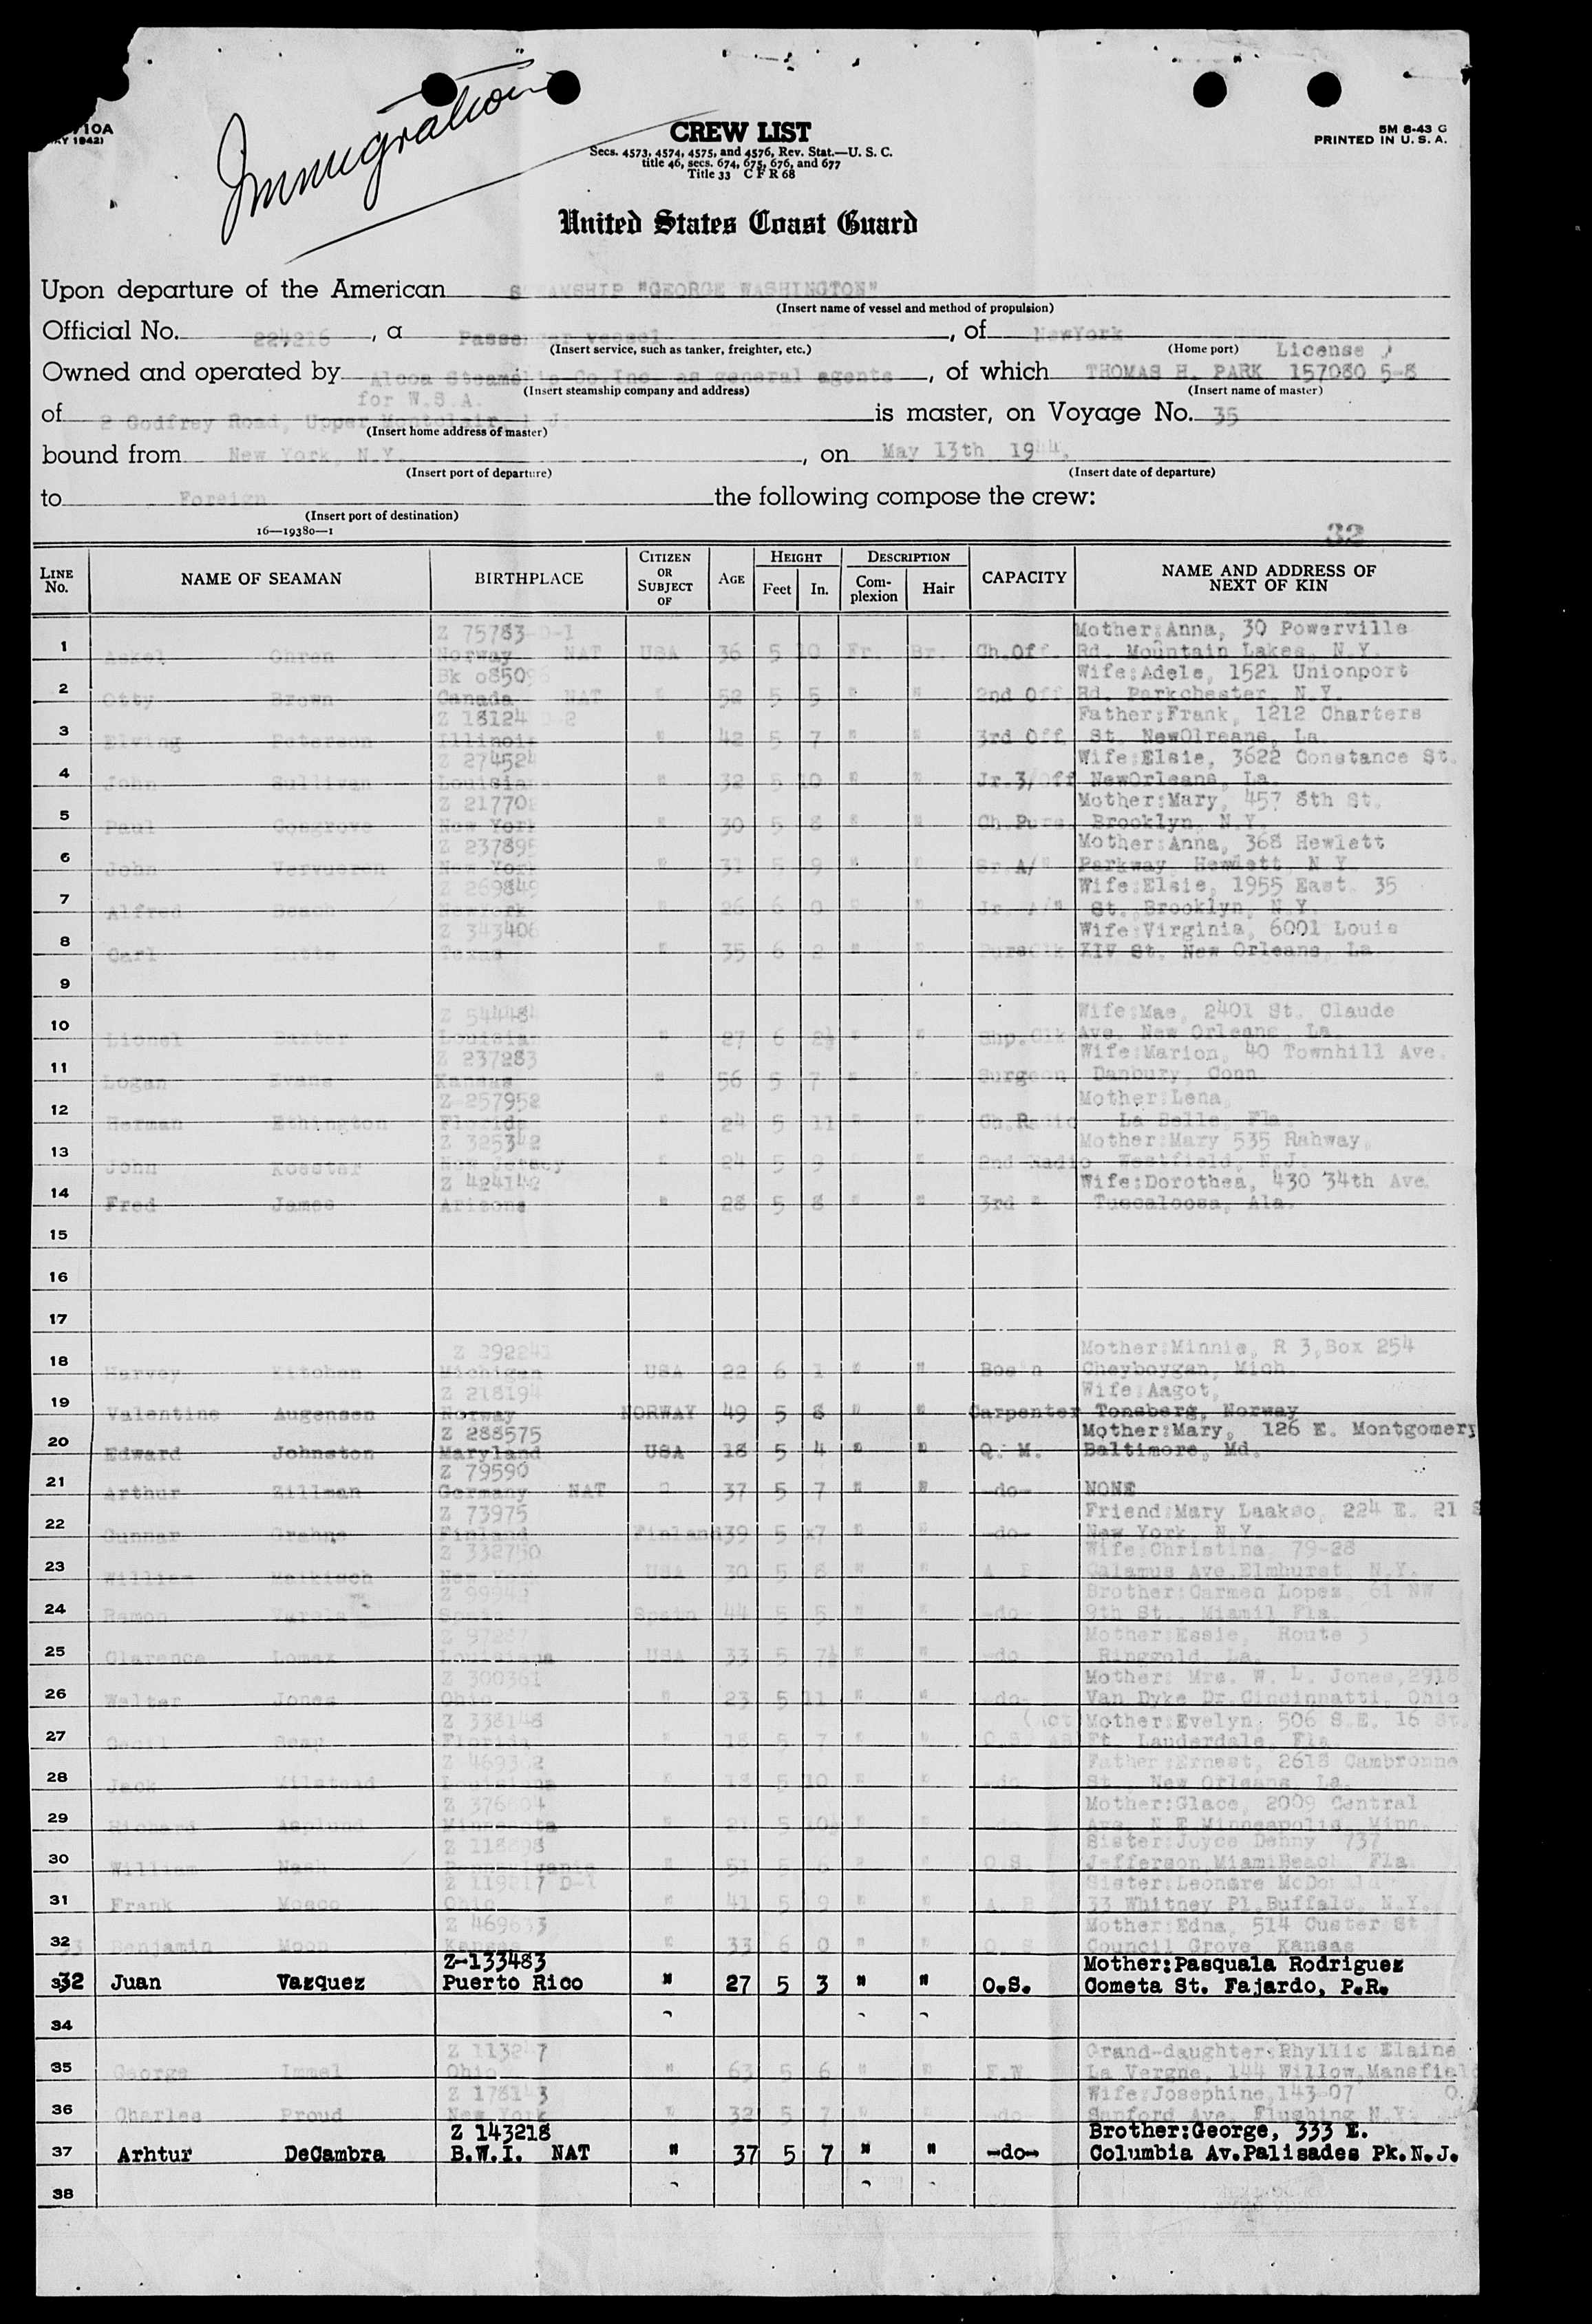 710A
CREW LIST
5M 8-43 G
PRINTED IN U. S. A.
Immigration
Secs. 4573, 4574, 4575, and 4576, Rev. Stat.—U. S. C.
title 46, secs. 674, 675, 676, and 677
Title 33 C F R 68
United States Coast Guard
Upon departure of the American STEAMSHIP "GEORGE WASHINGTON"
(Insert name of vessel and method of propulsion)
Official No. 224216, a Passenger vessel, of NewYork
(Insert service, such as tanker, freighter, etc.) (Home port) License
Owned and operated by Alcoa Steamship Co.Inc. as general agents, of which THOMAS H. PARK 157080 5-8
for W.S.A. (Insert steamship company and address) (Insert name of master)
of 2 Godfrey Road, Upper Montclair, N.J. is master, on Voyage No. 35
(Insert home address of master)
bound from New York, N.Y., on May 13th 1944.
(Insert port of departure) (Insert date of departure)
to Foreign the following compose the crew:
(Insert port of destination)
16—19380—1
32
LINE No. NAME OF SEAMAN BIRTHPLACE CITIZEN OR SUBJECT OF AGE HEIGHT Feet In. DESCRIPTION Complexion Hair CAPACITY NAME AND ADDRESS OF NEXT OF KIN
Z 75783 D-1 Mother:Anna, 30 Powerville
1 Askel Ohren Norway NAT USA 36 5 10 Fr. Br. Ch.Off. Rd. Mountain Lakes, N.Y.
Bk 085096 Wife:Adele, 1521 Unionport
2 Otty Brown Canada NAT " 52 5 5 " " 2nd Off Rd. Parkchester, N.Y.
Z 18124 D-2 Father:Frank, 1212 Charters
3 Elving Peterson Illinois " 42 5 7 " " 3rd Off. St. NewOlreans, La.
Z 27452 Wife:Elsie, 3622 Constance St.
4 John Sullivan Louisiana " 32 5 10 " " Jr.3/Off NewOrleans, La.
Z 21770 Mother:Mary, 457 8th St.
5 Paul Cosgrove New York " 30 5 8 " " Ch.Purs. Brooklyn, N.Y.
Z 237895 Mother:Anna, 368 Hewlett
6 John Vervueren New York " 31 5 9 " " Sr.A/" Parkway Hewlett N Y
Z 269849 Wife:Elsie, 1955 East 35
7 Alfred Beach NewYork " 26 6 0 " " Jr. A/" St. Brooklyn, N.Y.
Z 343406 Wife:Virginia, 6001 Louis
8 Carl Texas " 35 6 2 " " PursClk XIV St. New Orleans, La
9
Z 54448 Wife:Mae, 2401 St. Claude
10 Lionel Baxter Louisiana " 27 6 2½ " " Shp.Clk Ave. New Orleans, La.
Z 237283 Wife:Marion, 40 Townhill Ave.
11 Logan Evans Kansas " 56 5 7 " " Surgeon Danbury, Conn.
Z 257952 Mother:Lena,
12 Herman Ethington Florida " 24 5 11 " " Ch.Radio La Belle, Fla.
Z 325342 Mother:Mary 535 Rahway,
13 John Koester New Jersey " 24 5 9 " " 2nd Radio Westfield, N.J.
Z 424142 Wife:Dorothea, 430 34th Ave.
14 Fred James Arizona " 28 5 8 " " 3rd " Tuscaloosa, Ala.
15
16
17
Z 292241 Mother:Minnie, R 3,Box 254
18 Harvey Kitchen Michigan USA 22 6 1 " " Bos'n Cheyboygan, Mich.
Z 218194 Wife:Aagot,
19 Valentine Augensen Norway NORWAY 49 5 8 " " Carpenter Tonsberg, Norway
Z 288575 Mother:Mary, 126 E. Montgomery
20 Edward Johnston Maryland USA 18 5 4 " " Q. M. Baltimore, Md.
Z 79590
21 Arthur Zillman Germany NAT " 37 5 7 " " -do- NONE
Z 73975 Friend:Mary Laakso, 224 E. 21 S
22 Gunnar Grahns Finland Finland 39 5 x7 " " -do- New York, N.Y.
Z 332750 Wife:Christina 79-28
23 William New York USA 30 5 8 " " A B Calamus Ave.Elmhurst, N.Y.
Z 99942 Brother:Carmen Lopez, 61 NW
24 Ramon Varela Spain Spain 44 5 5 " " -do- 9th St., Miamil Fla.
Mother:Essie, Route 3
25 Clarence Lomax Louisiana USA 33 5 7½ " " -do- Ringgold, La.
Z 300361 Mother: Mrs. W. L. Jones,2918
26 Walter Jones Ohio " 23 5 11 " " -do- Van Dyke Dr.Cincinnatti, Ohio
Z 338148 (Act Mother:Evelyn, 506 S.E. 16 St.
27 Cecil Florida " 18 5 7 " " O.S. AB Ft. Lauderdale, Fla.
Z 469362 Father:Ernest, 2618 Cambronne
28 Jack Milstead Louisiana " 18 5 10 " " -do- St. New Orleans, La.
Z 376804 Mother:Glace, 2009 Central
29 Richard Asplund Minnesota " 21 5 10½ " " -do- Ave, N.E Minneapolis, Minn.
Z 118698 Sister:Joyce Denny 737
30 William Nash Pennsylvania " 51 5 6 " " O.S. Jefferson,MiamiBeach Fla
D-1 Sister:Leonore
31 Frank Mosco Ohio " 41 5 9 " " A. B 33 Whitney Pl.Buffalo, N.Y.
Z 469633 Mother:Edna, 514 Custer St
32 Benjamin Moon Kansas " 33 6 0 " " O S Council Grove Kansas
Z-133483 Mother:Pasquala Rodriguez
32 Juan Vazquez Puerto Rico " 27 5 3 " " O.S. Cometa St. Fajardo, P.R.
34
Grand-daughter:Phyllis Elaine
35 George Immel Ohio " 63 5 6 " " F.W La Vergne, 144 Willow,Mansfield
Wife:Josephine,143-07 O.
36 Charles Proud New York " 32 5 7 " " do Sanford Ave. Flushing N.Y.
Z 143218 Brother:George, 333 E.
37 Arhtur DeCambra B.W.I. NAT " 37 5 7 " " -do- Columbia Av.Palisades Pk.N.J.
38